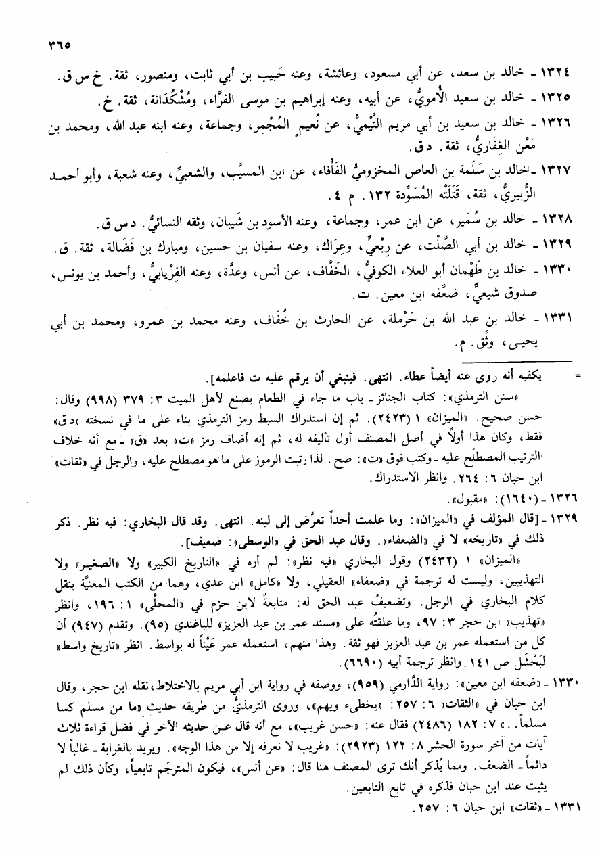 ٣٦٥
١٣٢٤ - خالد بن سعد، عن أبي مسعود، وعائشة، وعنه حَبيب بن أبي ثابت، ومنصور، ثقة. خ س ق.
١٣٢٥ - خالد بن سعيد الأُمويُّ، عن أبيه، وعنه إبراهيم بن موسى الفَرَّاء، ومُشْكُدَانة، ثقة. خ.
١٣٢٦ - خالد بن سعيد بن أبي مريم التَّيْميُّ، عن نُعيم المُجْمِر، وجماعة، وعنه ابنه عبد الله، ومحمد بن
مَعْن الغِفَاريُّ، ثقة. د ق.
١٣٢٧ - خالد بن سَلَمة بن العاص المخزوميُّ الفَأْفاء، عن ابن المسيَّب، والشعبيِّ، وعنه شعبة، وأبو أحمد
الزُّبيريُّ، ثقة، قَتَلَتْه المُسَوِّدة ١٣٢. م ٤.
١٣٢٨ - خالد بن سُمَير، عن ابن عمر، وجماعة، وعنه الأسود بن شَيبان، وثقه النسائيُّ. د س ق.
١٣٢٩ - خالد بن أبي الصَّلْت، عن رِبْعيٍّ، وعِرَاك، وعنه سفيان بن حسين، ومبارك بن فَضَالة، ثقة. ق.
١٣٣٠ - خالد بن طَهْمان أبو العلاء الكوفيُّ، الخَفَّاف، عن أنس، وعدَّة، وعنه الفِرْيابيُّ، وأحمد بن يونس،
صدوق شيعيٌّ، ضعَّفه ابن معين. ت.
١٣٣١ - خالد بن عبد الله بن حَرْملة، عن الحارث بن خُفَاف، وعنه محمد بن عمرو، ومحمد بن أبي
يحيى، وثِّق. م.
= يكفيه أنه روى عنه أيضاً عطاء. انتهى. فينبغي أن يرقم عليه ت فاعلمه].
«سنن الترمذي»: كتاب الجنائز - باب ما جاء في الطعام يصنع لأهل الميت ٣: ٣٧٩ (٩٩٨) وقال:
حسن صحيح. «الميزان» ١ (٢٤٢٣). ثم إن استدراك السبط رمز الترمذي بناء على ما في نسخته «د ق»
فقط، وكان هذا أولاً في أصل المصنف أول تأليفه له، ثم إنه أضاف رمز «ت» بعد «ق» - مع أنه خلاف
الترتيب المصطلَح عليه - وكتب فوق «ت»: صح. لذا رتبت الرموز على ما هو مصطلح عليه، والرجل في «ثقات»
ابن حبان ٦: ٢٦٤. وانظر الاستدراك.
١٣٢٦ - (١٦٤٠): «مقبول».
١٣٢٩ - [قال المؤلف في «الميزان»: وما علمت أحداً تعرَّض إلى لينه. انتهى. وقد قال البخاري: فيه نظر. ذكر
ذلك في «تاريخه» لا في «الضعفاء». وقال عبد الحق في «الوسطى»: ضعيف].
«الميزان» ١ (٢٤٣٢) وقول البخاري «فيه نظر»: لم أره في «التاريخ الكبير» ولا «الصغير» ولا
التهذيبين، وليست له ترجمة في «ضعفاء» العقيلي، ولا «كامل» ابن عدي، وهما من الكتب المعنيَّة بنقل
كلام البخاري في الرجل. وتضعيفُ عبد الحق له: متابعةً لابن حزم في «المحلَّى» ١: ١٩٦، وانظر
«تهذيب» ابن حجر ٣: ٩٧، وما علَّقتُه على «مسند عمر بن عبد العزيز» للباغندي (٩٥). وتقدم (٩٤٧) أن
كل من استعمله عمر بن عبد العزيز فهو ثقة. وهذا منهم، استعمله عمر عَيْناً له بواسط. انظر «تاريخ واسط»
لبَحْشَل ص ١٤١. وانظر ترجمة أبيه (٦٦٩٠).
١٣٣٠ - «ضعفه ابن معين»: رواية الدارمي (٩٥٩)، ووصفه في رواية ابن أبي مريم بالاختلاط، نقله ابن حجر، وقال
ابن حبان في «الثقات» ٦: ٢٥٧: «يخطىء ويهم»، وروى الترمذيُّ من طريقه حديث «ما من مسلم كسا
مسلماً..» ٧: ١٨٢ (٢٤٨٦) فقال عنه: «حسن غريب»، مع أنه قال عن حديثه الآخر في فضل قراءة ثلاث
آيات من آخر سورة الحشر ٨: ١٢٢ (٢٩٢٣): «غريب لا نعرفه إلا من هذا الوجه». ويريد بالغرابة - غالباً لا
دائماً - الضعف. ومما يُذكر أنك ترى المصنف هنا قال: «عن أنس»، فيكون المترجَم تابعياً، وكأن ذلك لم
يثبت عند ابن حبان فذكره في تابع التابعين.
١٣٣١ - «ثقات» ابن حبان ٦: ٢٥٧.